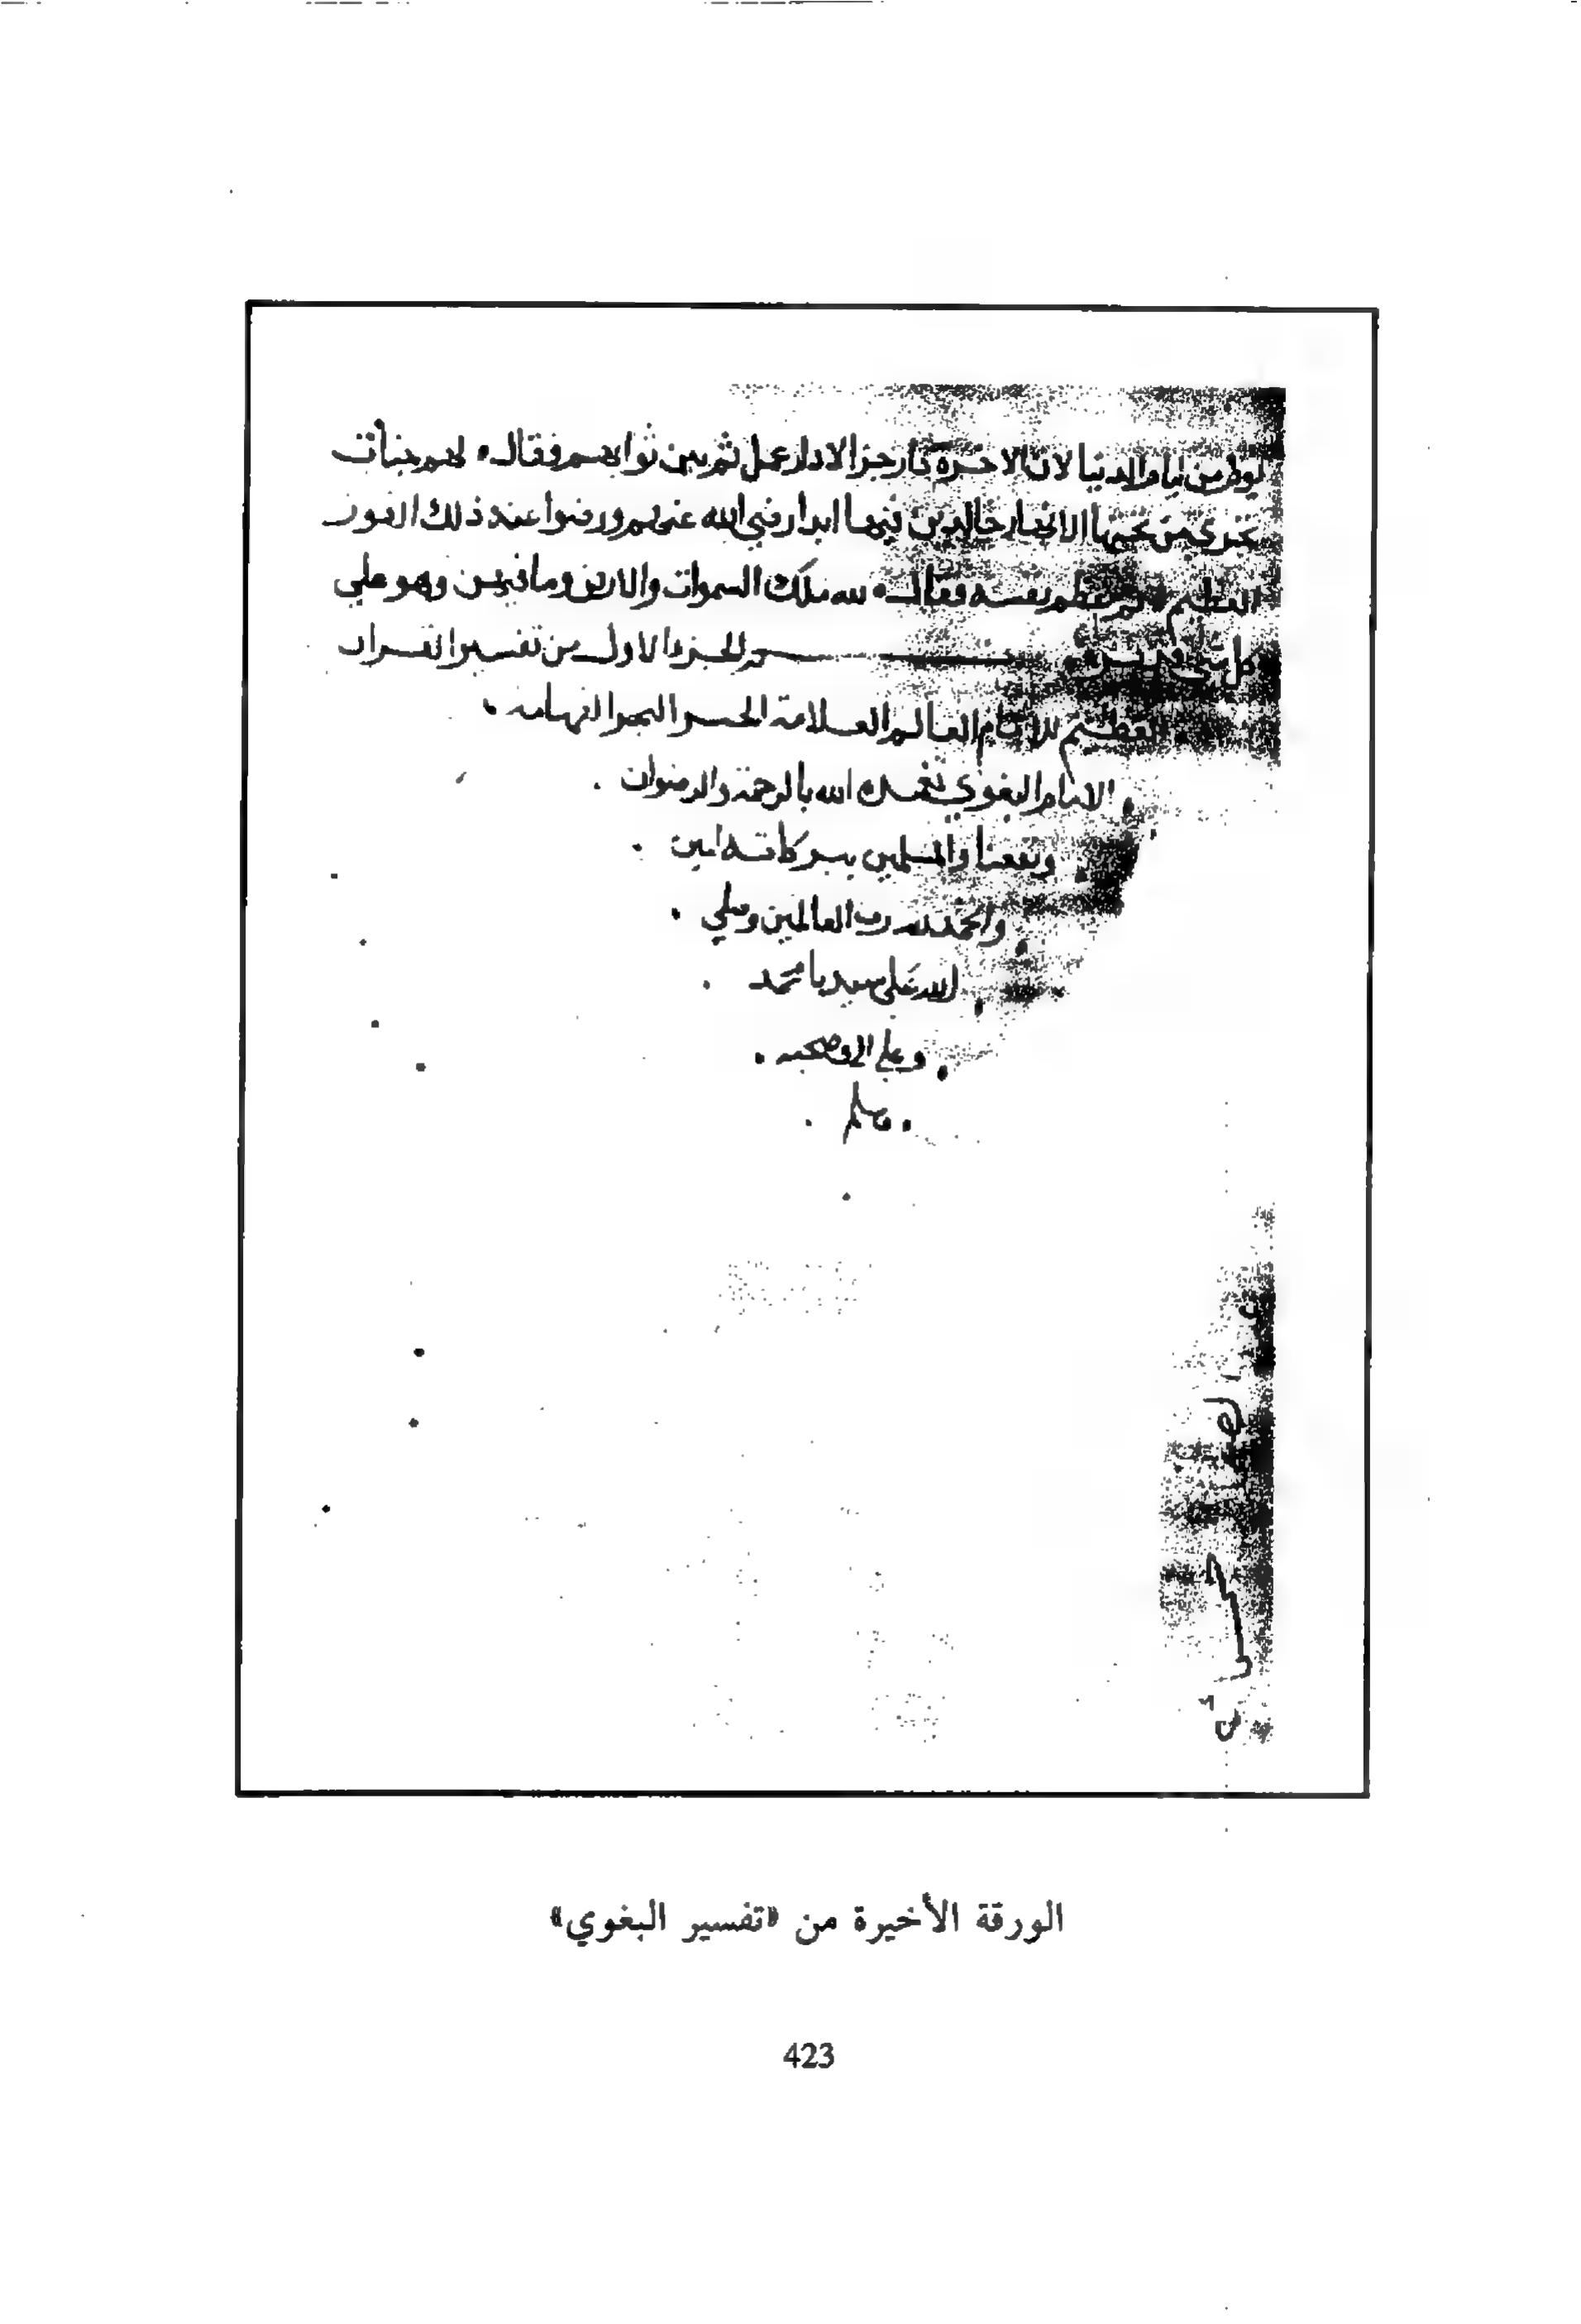 يوم من ايام الدنيا لان الاخرة دار جزا لا دار عمل ثم بين ثوابهم فقال لهم جنات
تجري من تحتها الانهار خالدين فيها ابدا رضي الله عنهم ورضوا عنه ذلك الفوز
العظيم ثم عظم نفسه فقال لله ملك السموات والارض وما فيهن وهو علي
كل شي قدير تم الجزء الاول من تفسير القران
العظيم للامام العالم العلامة الحبر البحر الفهامه
الامام البغوي تغمده الله بالرحمة والرضوان
ونفعنا والمسلمين ببركاته امين
والحمد لله رب العالمين وصلي
الله على سيدنا محمد
وعلي اله وصحبه
وسلم
الورقة الأخيرة من «تفسير البغوي»
423